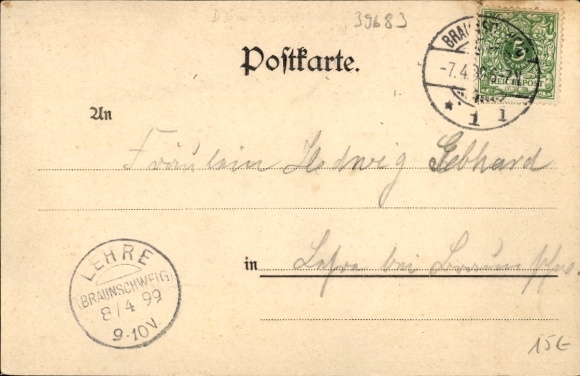 39683
Postkarte.
BRAUNSCHWEIG
-7.4.99. 5-7N.
* 1 l
5
REICHSPOST
An
Fräulein Hedwig Gebhard
in Lehre bei Braunschw.
LEHRE
(BRAUNSCHWEIG)
8/4 99
9-10V.
15€